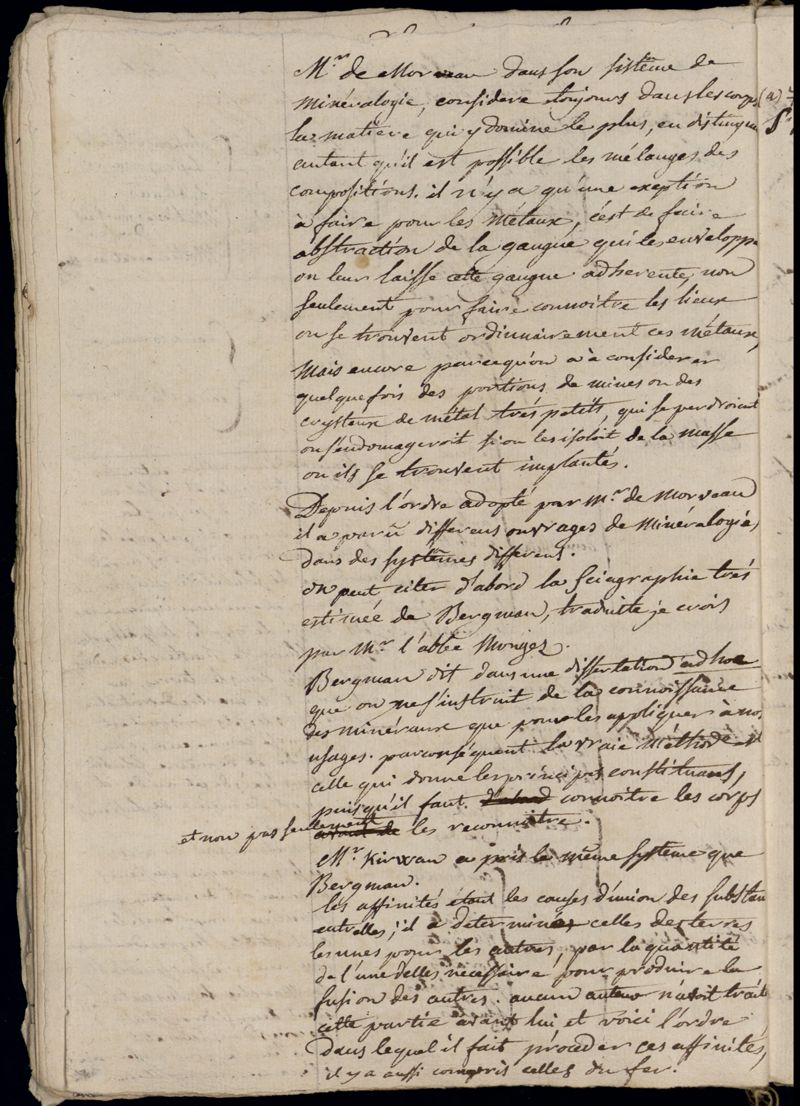 Mr. de Morveau dans son sistême de
minéralogie, considere toujours dans les corps
la matiere qui y domine le plus, en distinguant
autant qu'il est possible les mélanges des
compositions. il n'y a qu'une exeption
à faire pour les métaux, c'est de faire
abstraction de la gangue qui les enveloppe
on leur laisse cette gangue adherente, non
seulement pour faire connoitre les lieux
ou se trouvent ordinnairement ces métaux,
mais encore parcequ'on a à considerer
quelquefois des portions de mines ou des
crystaux de métal trés petits, qui se perdroient
ou s'endomageroit si on les isoloit de la masse
ou ils se trouvent implantés.
Depuis l'ordre adopté par Mr. de Morveau
il a parû differens ouvrages de minéralogie,
dans des systêmes differens.
on peut citer d'abord la sciagraphie trés
estimée de Bergman, traduitte je crois
par Mr. l'abbé Mongez.
Bergman dit dans une dissertation ad hoc
que on ne s'instruit de la connoissance
des minéraux que pour les appliquer à nos
usages. par conséquent la vraie méthode est
celle qui donne les principes constituans,
puisqu'il faut d'abord connoitre les corps
et non pas seulement
avant de les reconnoitre.
Mr. Kirwan a pris le même systeme que
Bergman.
les affinités étant les causes d'union des substan
entr'elles; il a déterminés celles des terres
les unes pour les autres, par la quantité
de l'une d'elles nécessaire pour produire la
fusion des autres. aucun auteur n'avoit traité
cette partie avant lui et voici l'ordre
dans lequel il fait procéder ces affinités,
il y a aussi compris celles du fer.
(a)